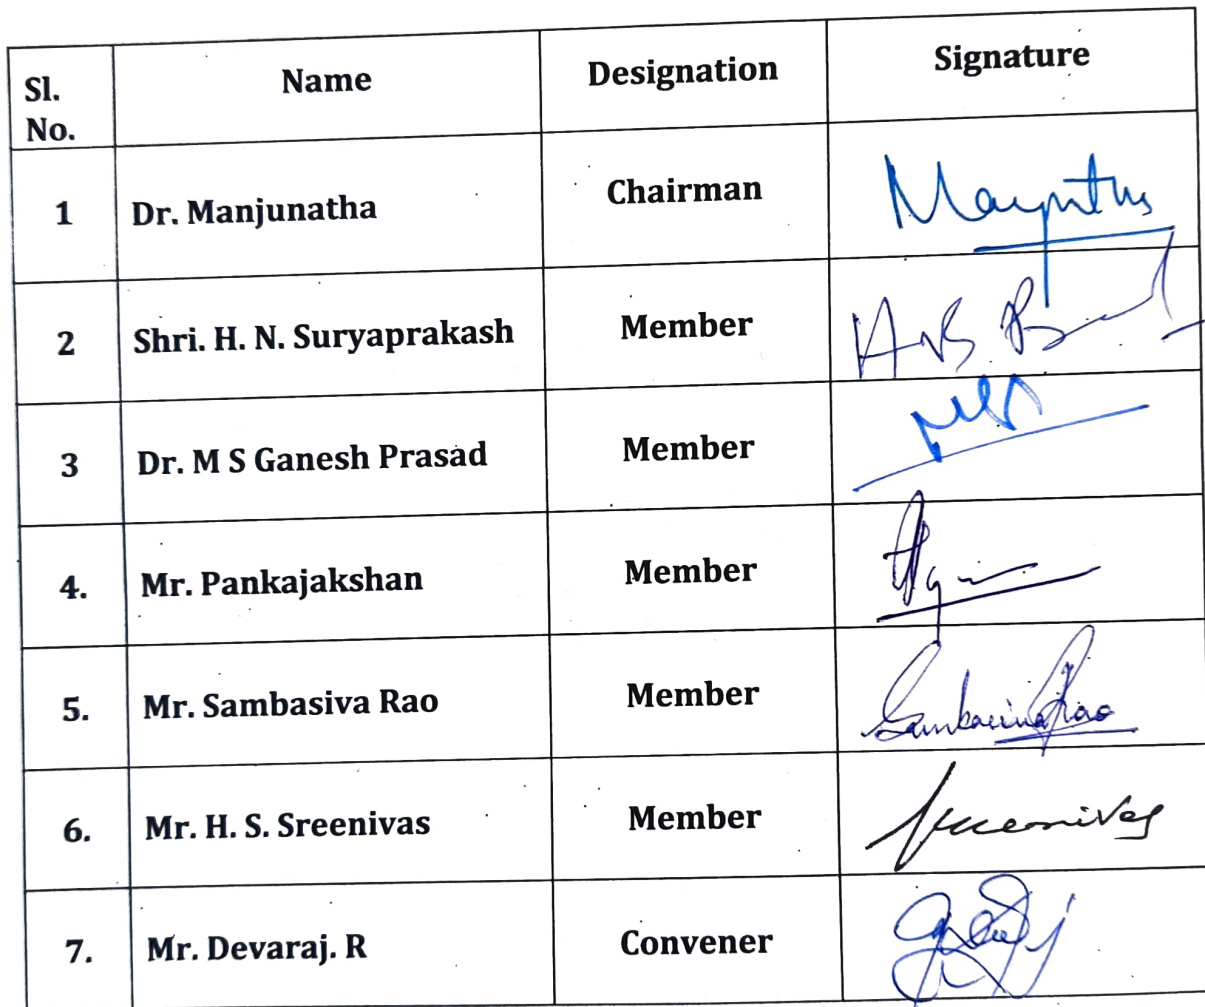 Sl. No. Name Designation Signature
1 Dr. Manjunatha Chairman
2 Shri. H. N. Suryaprakash Member
3 Dr. M S Ganesh Prasad Member
4. Mr. Pankajakshan Member
5. Mr. Sambasiva Rao Member Sambasiva Rao
6. Mr. H. S. Sreenivas Member Sreenivas
7. Mr. Devaraj. R Convener